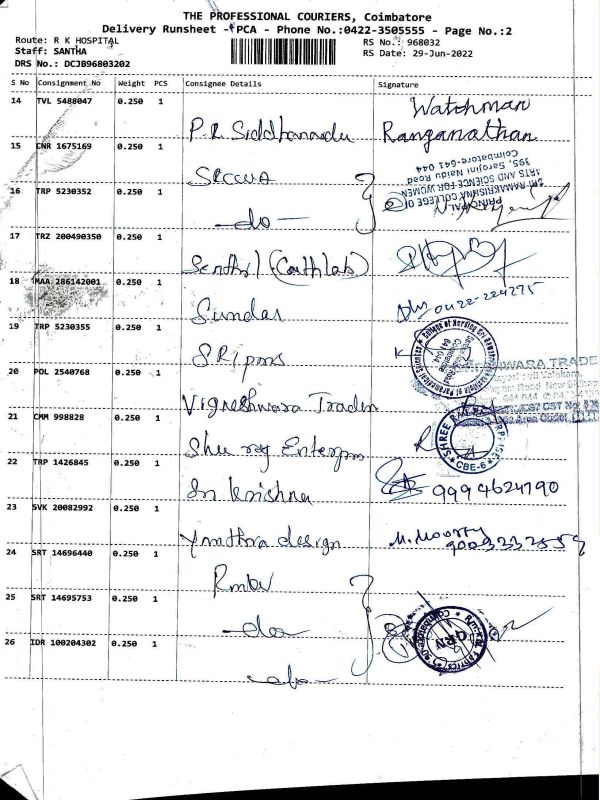 THE PROFESSIONAL COURIERS, Coimbatore
Delivery Runsheet - PCA - Phone No.:0422-3505555 - Page No.:2
Route: R K HOSPITAL
RS No.: 968032
Staff: SANTHA
RS Date: 29-Jun-2022
DRS No.: DCJB96803202
S No Consignment No Weight PCS Consignee Details Signature
14 TVL 5488047 0.250 1
Watchman
P.R. Siddhanandu Ranganathan
15 CNR 1675169 0.250 1
SRCCWA
PRINCIPAL
SRI RAMAKRISHNA COLLEGE OF
ARTS AND SCIENCE FOR WOMEN
395, Sarojini Naidu Road
Coimbatore-641 044
16 TRP 5230352 0.250 1
-do-
17 TRZ 200490350 0.250 1
Senthil (Cathlab)
18 MAA 286142001 0.250 1
Sundar
19 TRP 5230355 0.250 1
SRipms
20 POL 2540768 0.250 1
Vigneshwara Traders
21 CMM 998828 0.250 1
SHREE RAJ
CBE-6
22 TRP 1426845 0.250 1
Sri Krishna 9994624790
23 SVK 20082992 0.250 1
design M. Moorthy
24 SRT 14696440 0.250 1
25 SRT 14695753 0.250 1
-do-
GRN
26 IDR 100204302 0.250 1
-do-